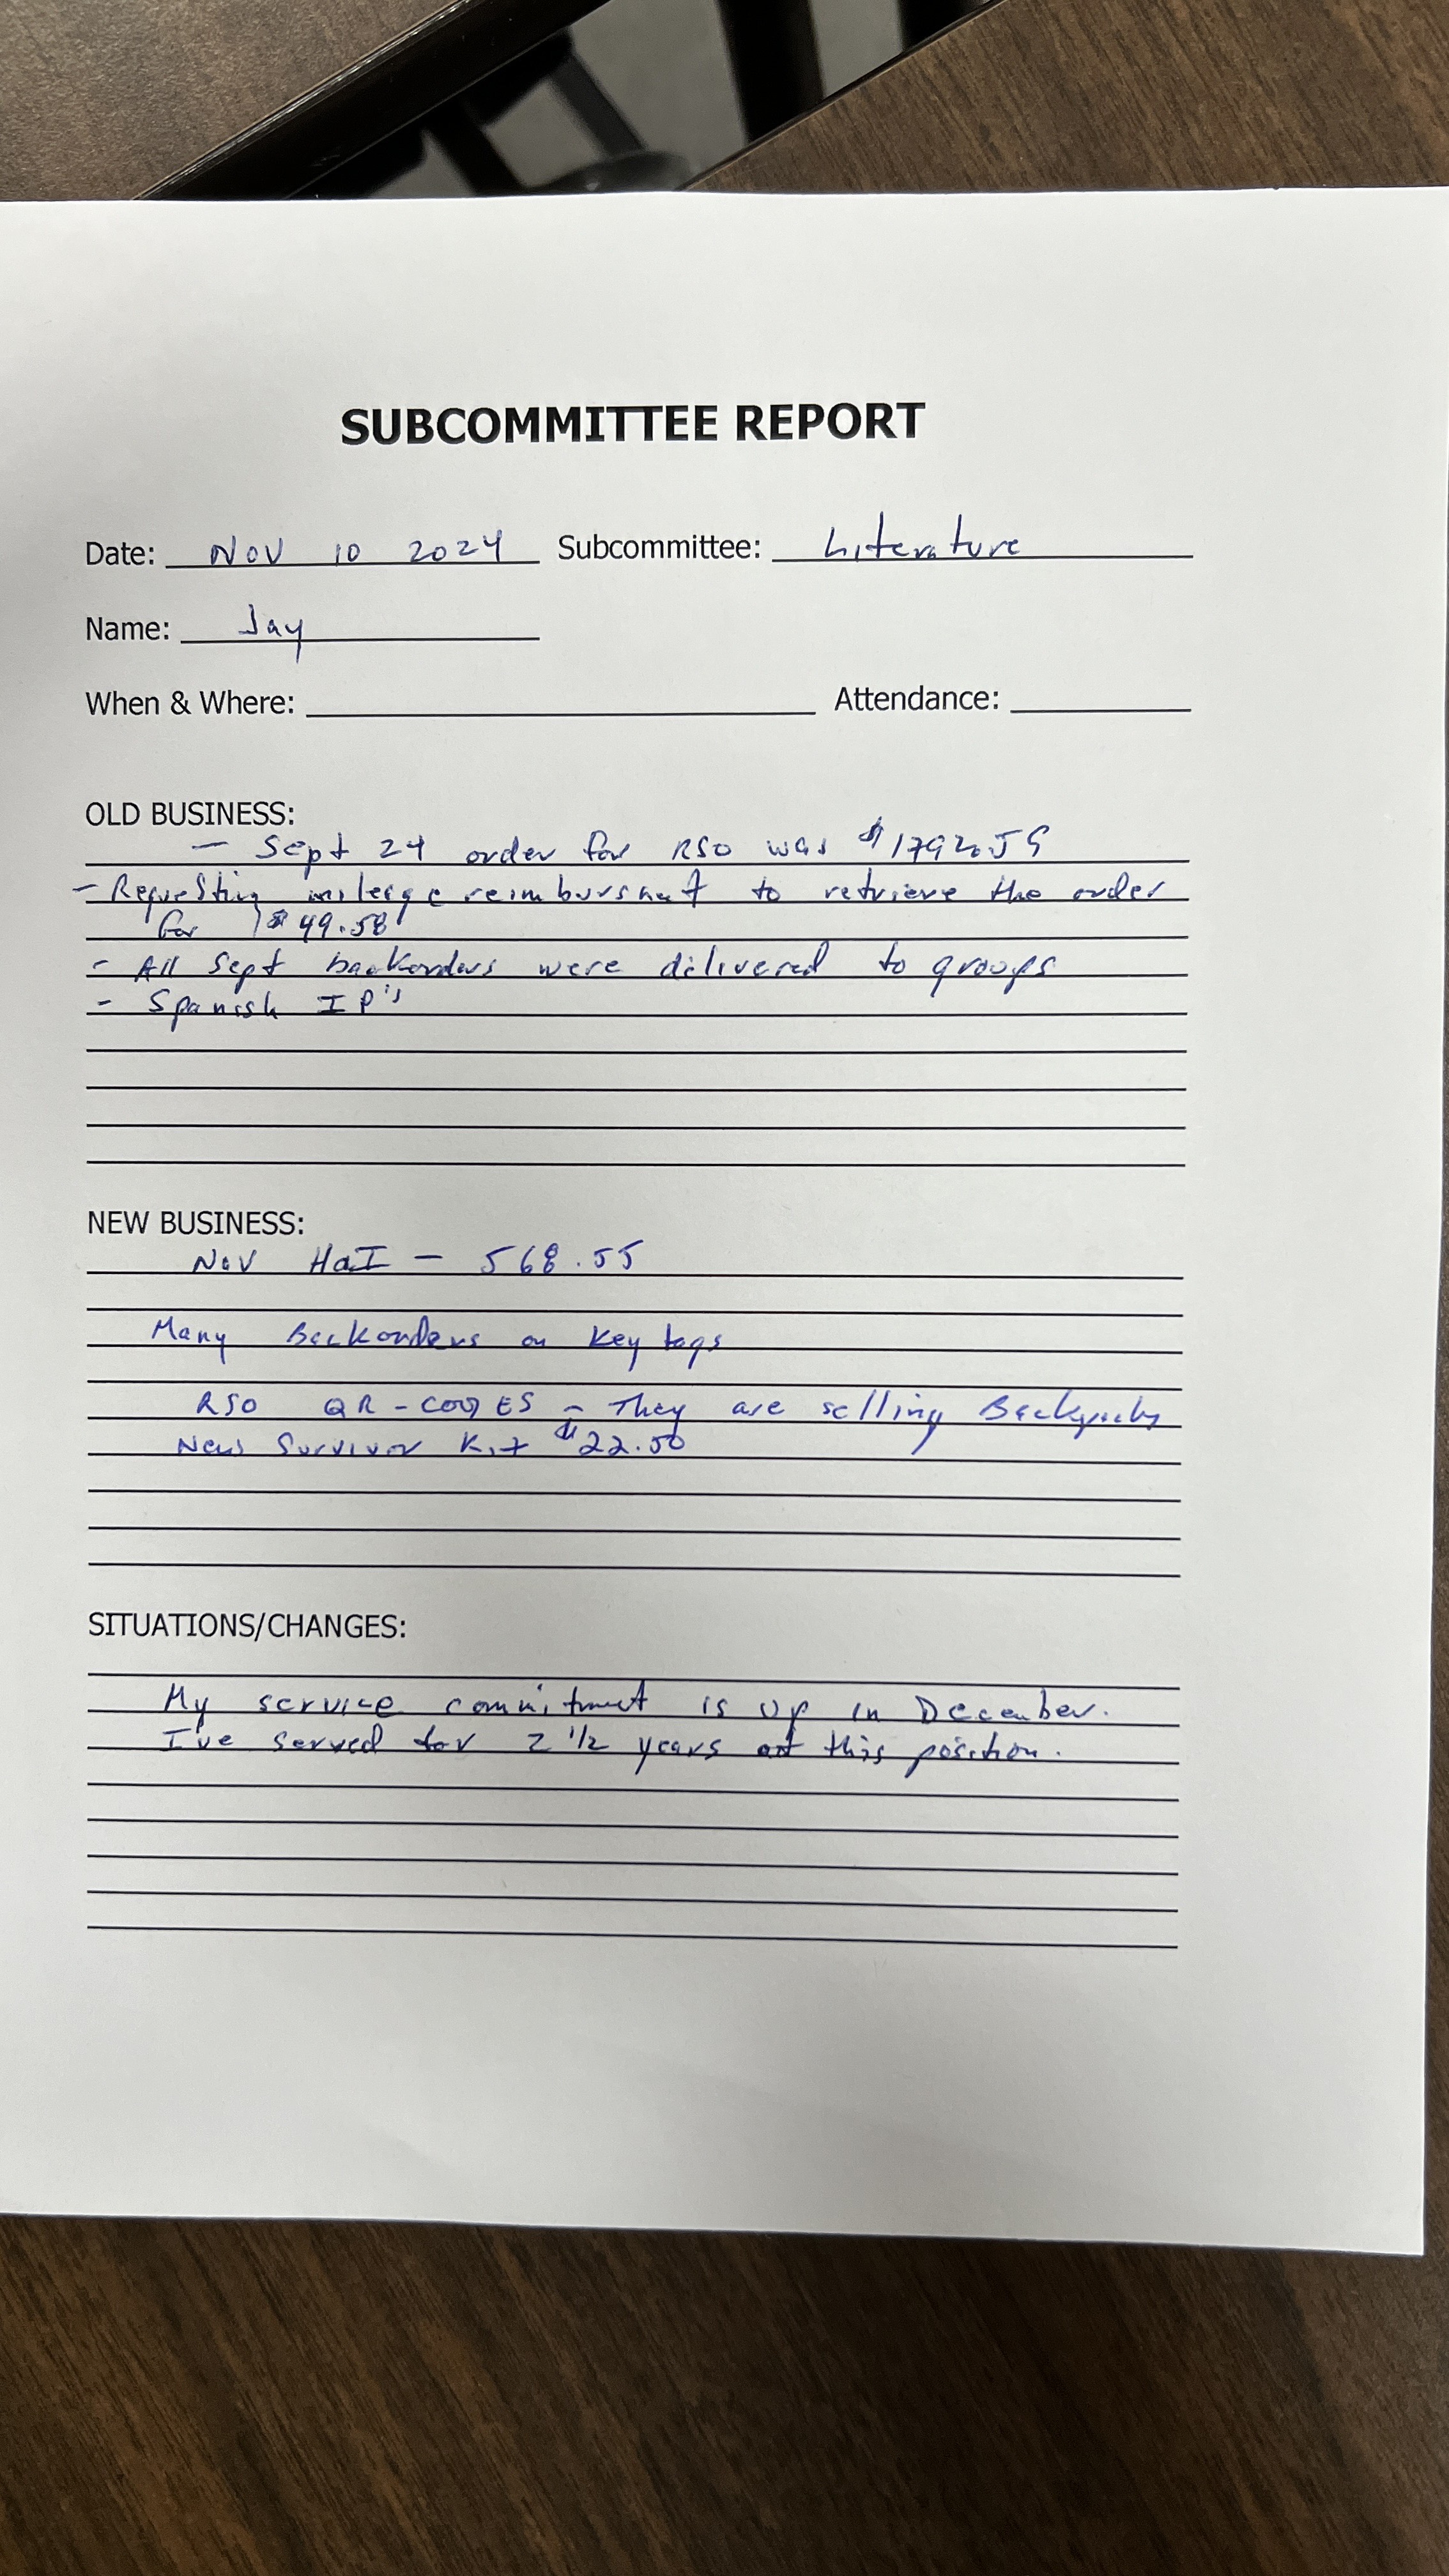 SUBCOMMITTEE REPORT
Date: Nov 10 2024 Subcommittee: Literature
Name: Jay
When & Where: Attendance:
OLD BUSINESS:
- Sept 24 order for RSO was $1792.59
- Requesting mileage reimbursment to retrieve the order
for $49.58
- All Sept backorders were delivered to groups
- Spanish IP's
NEW BUSINESS:
Nov HaI - 568.55
Many Backorders on Key tags
RSO QR-CODES - They are selling Backpacks
New Survivor Kit $22.50
SITUATIONS/CHANGES:
My service commitment is up in December.
I've served for 2 1/2 years at this position.